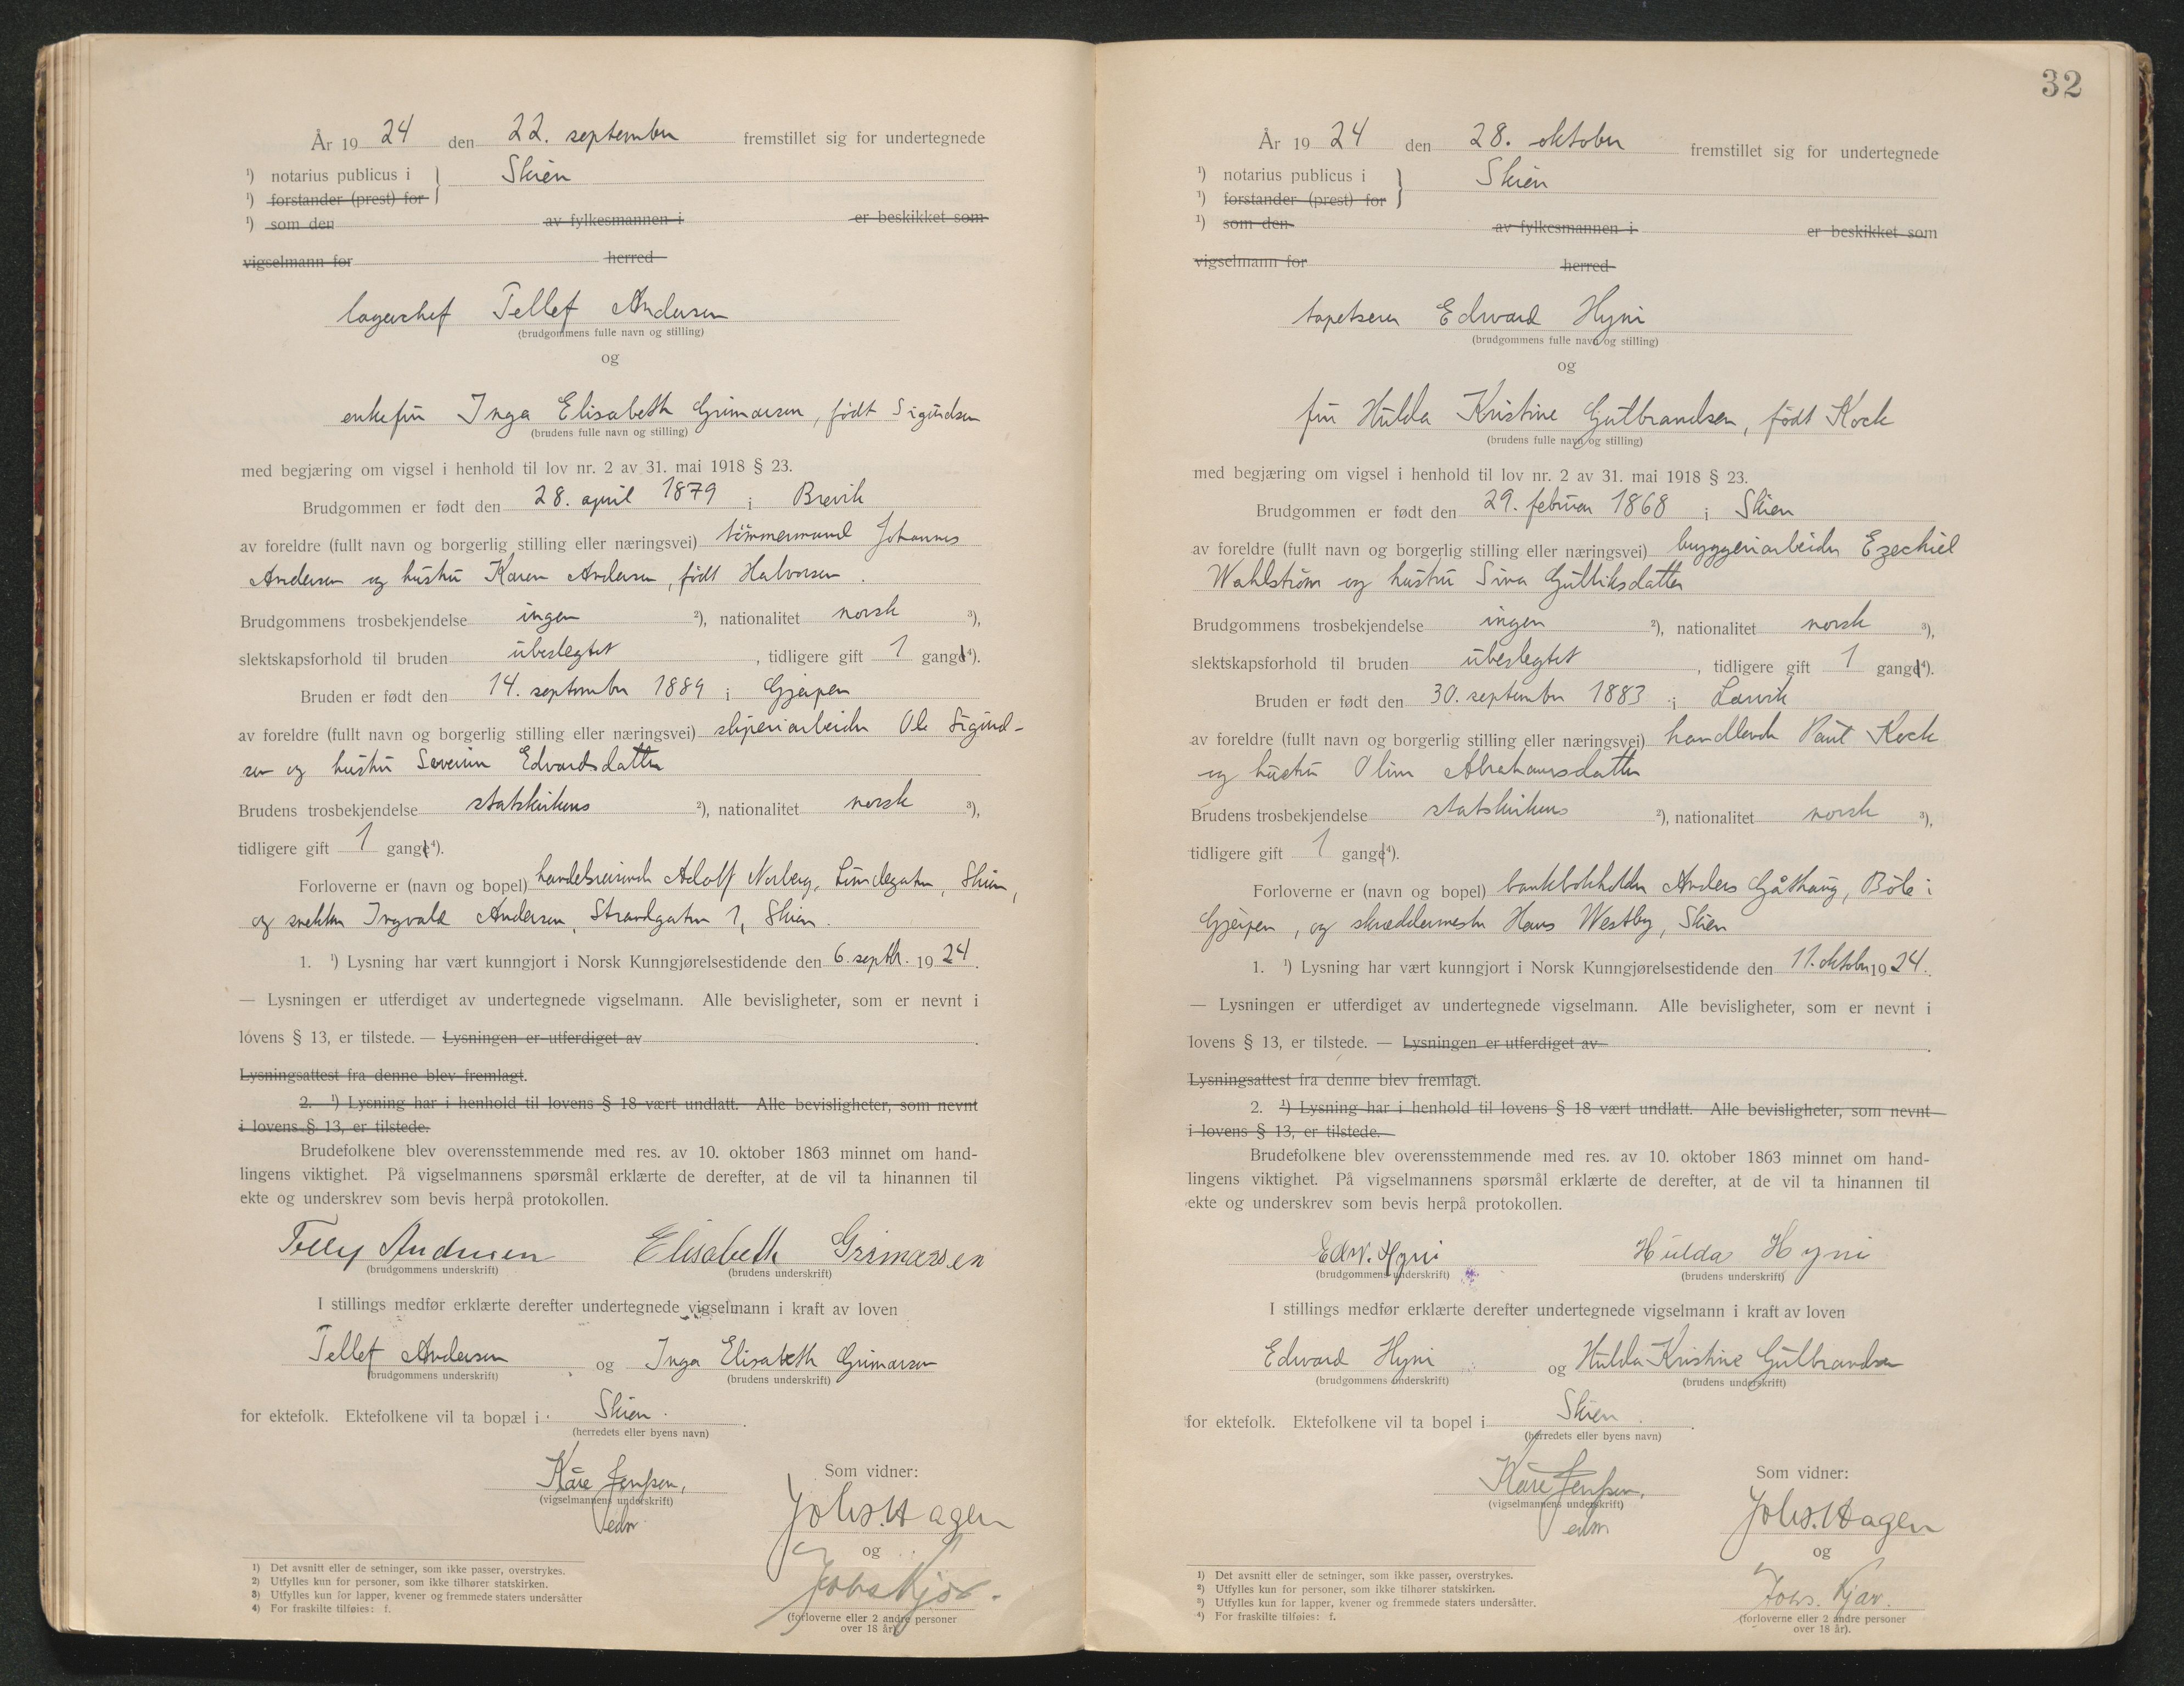 År 1924 den 22. september fremstillet sig for undertegnede
¹) notarius publicus i } Skien
¹) forstander (prest) for
¹) som den av fylkesmannen i er beskikket som
vigselmann for herred
lagerchef Tellef Andersen
(brudgommens fulle navn og stilling)
og
enkefru Inga Elisabeth Grimarsen, født Sigurdsen
(brudens fulle navn og stilling)
med begjæring om vigsel i henhold til lov nr. 2 av 31. mai 1918 § 23.
Brudgommen er født den 28. april 1879 i Brevik
av foreldre (fullt navn og borgerlig stilling eller næringsvei) tömmermand Johannes
Andersen og hustru Karen Andersen, født Halvorsen.
Brudgommens trosbekjendelse ingen ²), nationalitet norsk ³),
slektskapsforhold til bruden ubeslegtet, tidligere gift 1 gang⁴).
Bruden er født den 14. september 1889 i Gjerpen
av foreldre (fullt navn og borgerlig stilling eller næringsvei) sliperiarbeider Ole Sigurd-
sen og hustru Severine Edvardsdatter
Brudens trosbekjendelse statskirkens ²), nationalitet norsk ³),
tidligere gift 1 gang⁴).
Forloverne er (navn og bopel) handelsreisende Adolf Norberg, Lundegaten, Skien,
og snekker Ingvald Andersen, Strandgaten 1, Skien.
1. ¹) Lysning har vært kunngjort i Norsk Kunngjørelsestidende den 6. septbr. 1924.
— Lysningen er utferdiget av undertegnede vigselmann. Alle bevisligheter, som er nevnt i
lovens § 13, er tilstede. — Lysningen er utferdiget av
Lysningsattest fra denne blev fremlagt.
2. ¹) Lysning har i henhold til lovens § 18 vært undlatt. Alle bevisligheter, som nevnt
i lovens § 13, er tilstede.
Brudefolkene blev overensstemmende med res. av 10. oktober 1863 minnet om hand-
lingens viktighet. På vigselmannens spørsmål erklærte de derefter, at de vil ta hinannen til
ekte og underskrev som bevis herpå protokollen.
Andersen Elisabeth Grimarsen
(brudgommens underskrift) (brudens underskrift)
I stillings medfør erklærte derefter undertegnede vigselmann i kraft av loven
Tellef Andersen og Inga Elisabeth Grimarsen
(brudgommens underskrift) (brudens underskrift)
for ektefolk. Ektefolkene vil ta bopæl i Skien.
(herredets eller byens navn)
Kåre Jenssen,
(vigselmannens underskrift)
edm
Som vidner:
Johs. Hagen
og
Johs Kjær.
(forloverne eller 2 andre personer
over 18 år).
1) Det avsnitt eller de setninger, som ikke passer, overstrykes.
2) Utfylles kun for personer, som ikke tilhører statskirken.
3) Utfylles kun for lapper, kvener og fremmede staters undersåtter
4) For fraskilte tilføies: f.
32
År 1924 den 28. oktober fremstillet sig for undertegnede
¹) notarius publicus i } Skien
¹) forstander (prest) for
¹) som den av fylkesmannen i er beskikket som
vigselmann for herred
tapetserer Edward Hyni
(brudgommens fulle navn og stilling)
og
fru Hulda Kristine Gulbrandsen, født Kock
(brudens fulle navn og stilling)
med begjæring om vigsel i henhold til lov nr. 2 av 31. mai 1918 § 23.
Brudgommen er født den 29. februar 1868 i Skien
av foreldre (fullt navn og borgerlig stilling eller næringsvei) bryggeriarbeider Ezechiel
Wahlström og hustru Sina Gulliksdatter
Brudgommens trosbekjendelse ingen ²), nationalitet norsk ³),
slektskapsforhold til bruden ubeslegtet, tidligere gift 1 gang⁴).
Bruden er født den 30. september 1883 i Larvik
av foreldre (fullt navn og borgerlig stilling eller næringsvei) handlende Paul Kock
og hustru Oline Abrahamsdatter
Brudens trosbekjendelse statskirkens ²), nationalitet norsk ³),
tidligere gift 1 gang⁴).
Forloverne er (navn og bopel) bankbokholder Anders Gåthaug, Böle i
Gjerpen, og skræddermester Hans Westby, Skien
1. ¹) Lysning har vært kunngjort i Norsk Kunngjørelsestidende den 11. oktober 1924.
— Lysningen er utferdiget av undertegnede vigselmann. Alle bevisligheter, som er nevnt i
lovens § 13, er tilstede. — Lysningen er utferdiget av
Lysningsattest fra denne blev fremlagt.
2. ¹) Lysning har i henhold til lovens § 18 vært undlatt. Alle bevisligheter, som nevnt
i lovens § 13, er tilstede.
Brudefolkene blev overensstemmende med res. av 10. oktober 1863 minnet om hand-
lingens viktighet. På vigselmannens spørsmål erklærte de derefter, at de vil ta hinannen til
ekte og underskrev som bevis herpå protokollen.
Edw. Hyni Hulda Hyni
(brudgommens underskrift) (brudens underskrift)
I stillings medfør erklærte derefter undertegnede vigselmann i kraft av loven
Edward Hyni og Hulda Kristine Gulbrandsen
(brudgommens underskrift) (brudens underskrift)
for ektefolk. Ektefolkene vil ta bopel i Skien.
(herredets eller byens navn)
Kåre Jenssen,
(vigselmannens underskrift)
edm
Som vidner:
Johs. Hagen
og
Johs. Kjær.
(forloverne eller 2 andre personer
over 18 år).
1) Det avsnitt eller de setninger, som ikke passer, overstrykes.
2) Utfylles kun for personer, som ikke tilhører statskirken.
3) Utfylles kun for lapper, kvener og fremmede staters undersåtter.
4) For fraskilte tilføies: f.